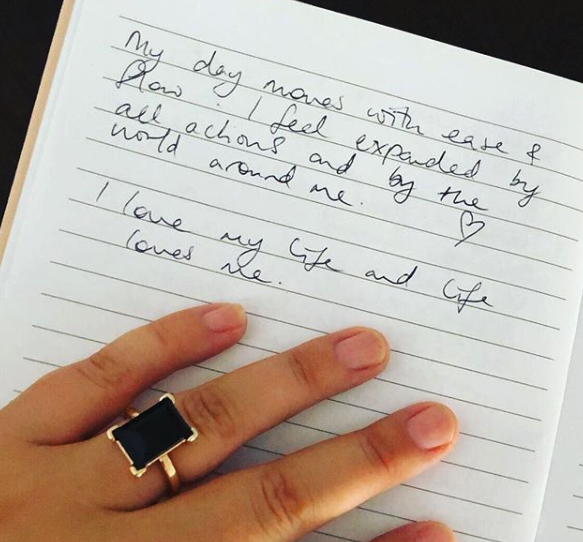 My day moves with ease &
flow. I feel expanded by
all actions and by the
world around me. ♡
I love my life and life
loves me.